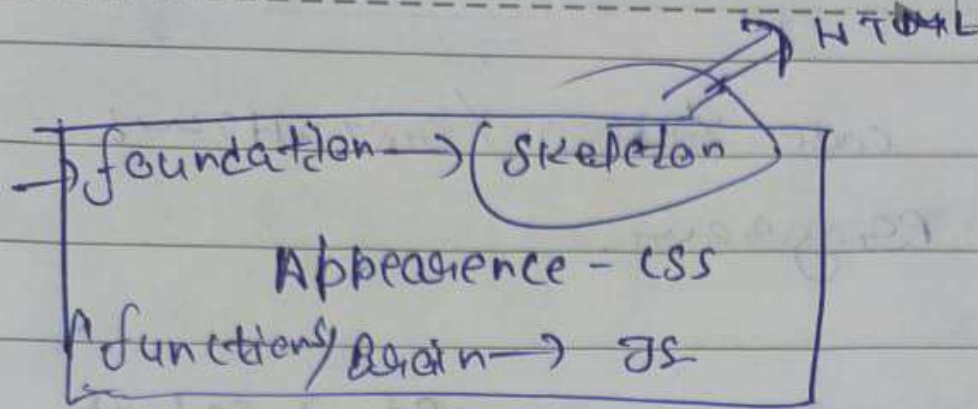 HTML
→ foundation → Skeleton
Appearence - CSS
functions/Brain → JS